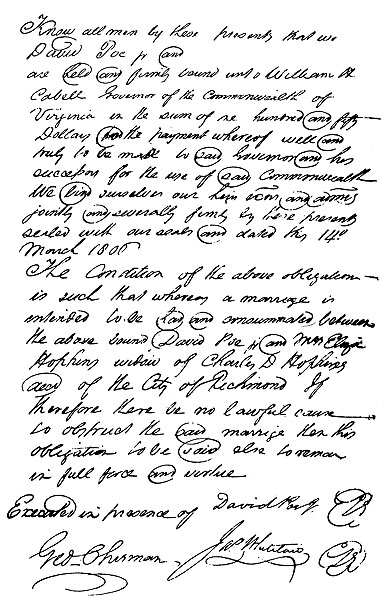 Know all men by these presents that we
David Poe jr and
are held and firmly bound unto William H
Cabell Governor of the Commonwealth of
Virginia in the sum of one hundred and fifty
Dollars for the payment whereof well and
truly to be made to said Governor and his
successors for the use of said Commonwealth
We bind ourselves our heirs exors and admrs
jointly and severally firmly by these presents
sealed with our seals and dated this 14th
March 1806
The Condition of the above obligation
is such that whereas a marriage is
intended to be had and consummated between
the above bound David Poe jr and Mrs Eliza
Hopkins widow of Charles D Hopkins
decd of the City of Richmond If
Therefore there be no lawful cause
to obstruct the said marriage then this
obligation to be void else to remain
in full force and virtue
Executed in presence of David Poe Jr.
Geo Cherman